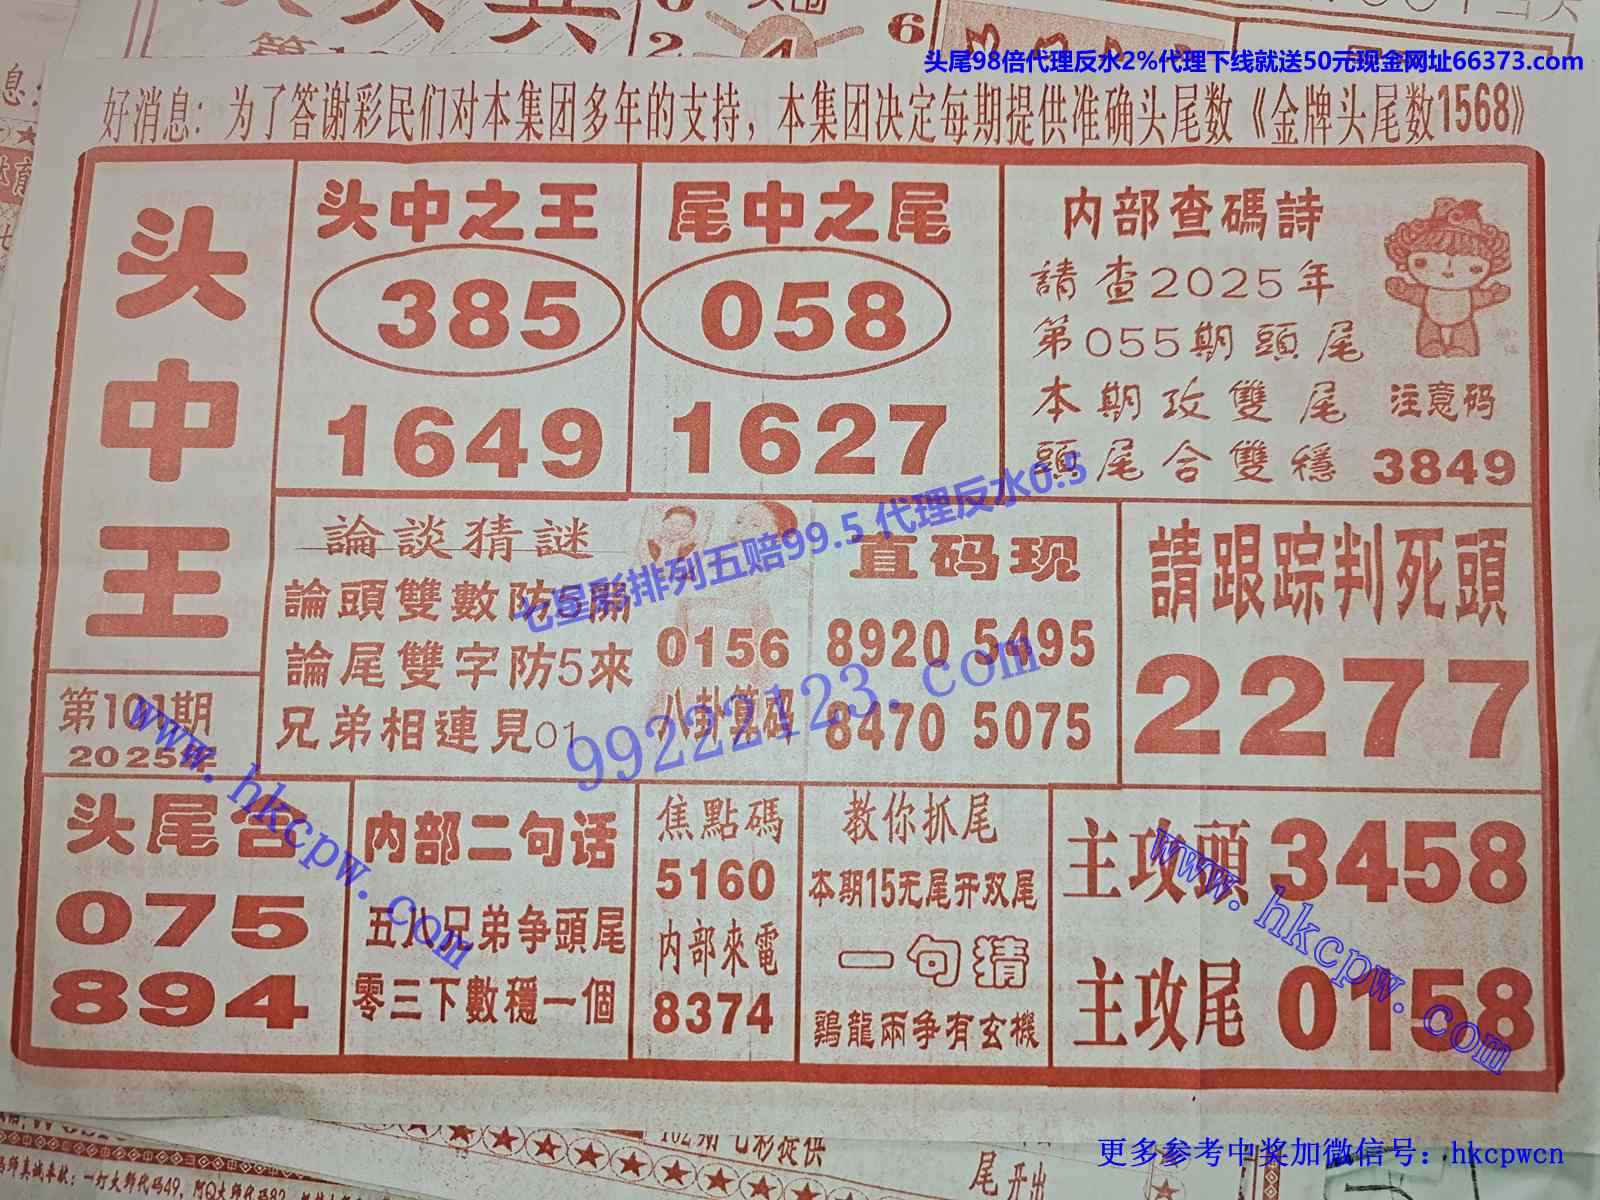 头尾98倍代理反水2%代理下线就送50元现金网址66373.com
好消息：为了答谢彩民们对本集团多年的支持，本集团决定每期提供准确头尾数《金牌头尾数1568》
头中王
第101期
2025年
头中之王
385
1649
尾中之尾
058
1627
内部查碼詩
請查2025年
第055期頭尾
本期攻雙尾
頭尾合雙穩
注意码
3849
論談猜謎
論頭雙數防5開
論尾雙字防5來
兄弟相連見01
0156
八卦算码
直码现
8920 5495
8470 5075
請跟踪判死頭
2277
七星彩排列五赔99.5 代理反水0.5
99222123.com
www.hkcpw.com
头尾合
075
894
内部二句话
五八兄弟争頭尾
零三下數穩一個
焦點碼
5160
内部來電
8374
教你抓尾
本期15无尾开双尾
一句猜
鷄龍兩争有玄機
主攻頭 3458
主攻尾 0158
www.hkcpw.com
102期 七彩提供
尾开出
更多参考中奖加微信号：hkcpwcn